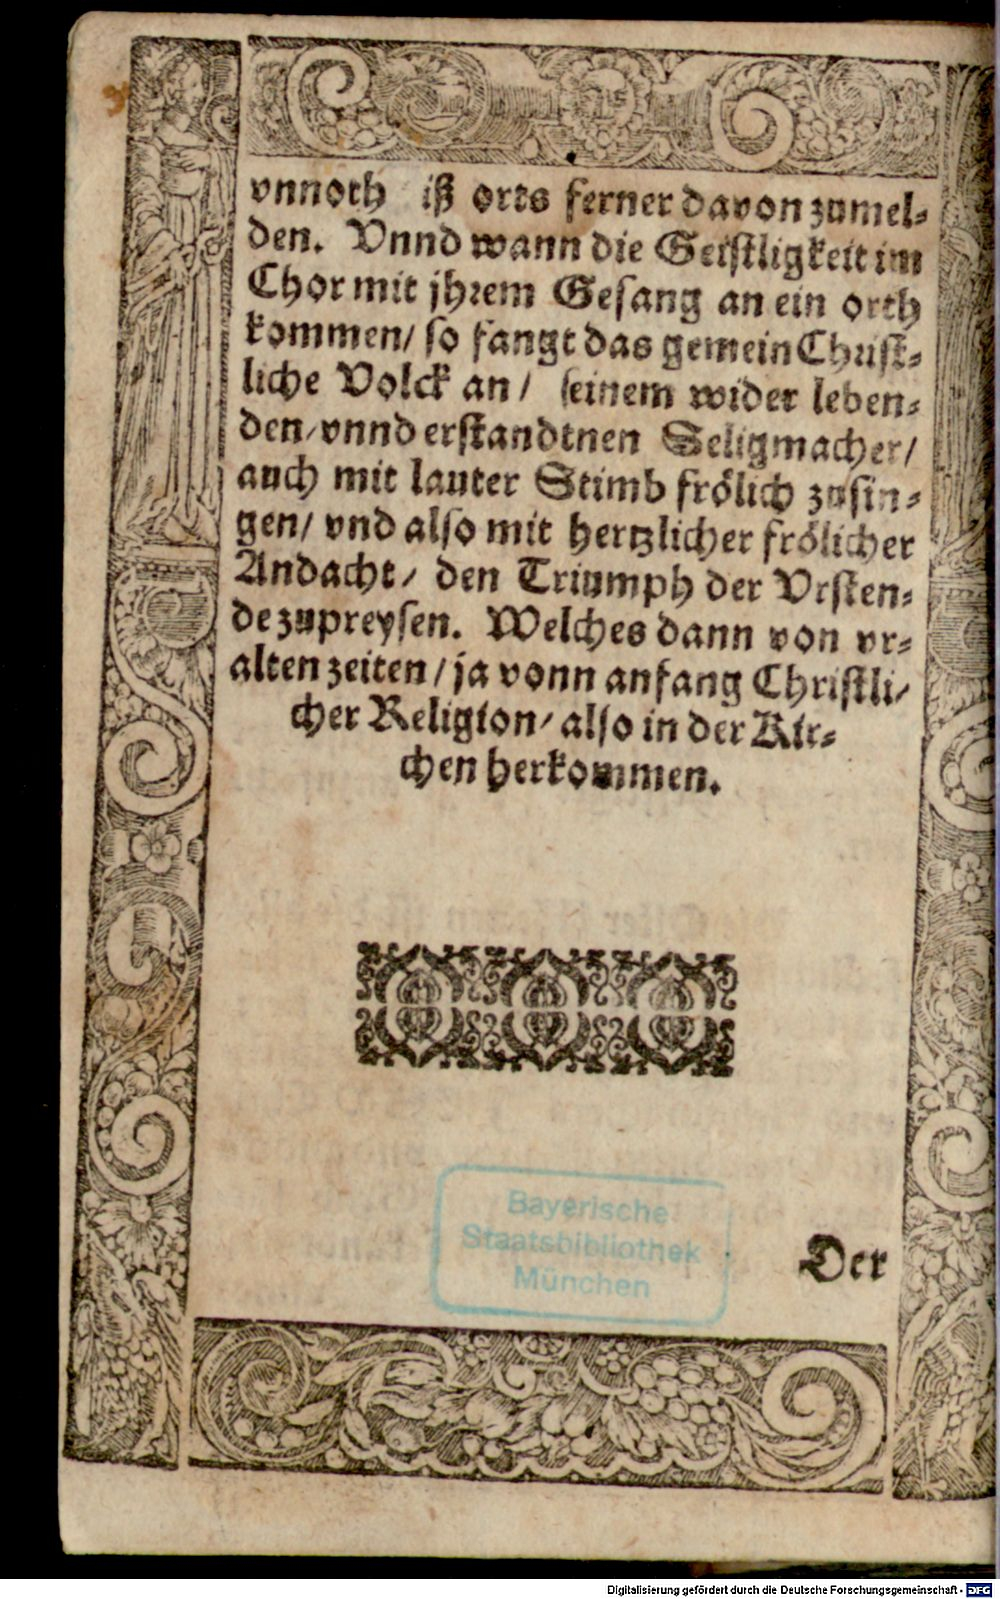 vnnoth iß orts ferner davon zumel⸗
den. Vnnd wann die Geistligkeit im
Chor mit jhrem Gesang an ein orth
kommen/ so fangt das gemein Christ⸗
liche Volck an/ seinem wider leben⸗
den/ vnnd erstandtnen Seligmacher/
auch mit lauter Stimb frölich zusin⸗
gen/ vnd also mit hertzlicher frölicher
Andacht/ den Triumph der Vrsten⸗
de zupreysen. Welches dann von vr⸗
alten zeiten/ ja vonn anfang Christli⸗
cher Religion/ also in der Kir⸗
chen herkommen.
Bayerische
Staatsbibliothek
München
Der
Digitalisierung gefördert durch die Deutsche Forschungsgemeinschaft - DFG